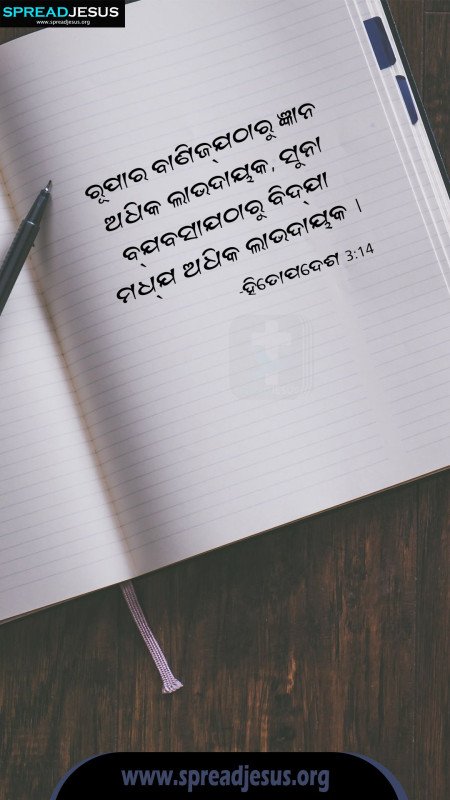 SPREADJESUS
www.spreadjesus.org
ରୂପାର ବାଣିଜ୍ଯଠାରୁ ଜ୍ଞାନ
ଅଧିକ ଲାଭଦାୟକ, ସୁନା
ବ୍ଯବସାଯଠାରୁ ବିଦ୍ଯା
ମଧ୍ଯ ଅଧିକ ଲାଭଦାୟକ ।
-ହିତୋପଦେଶ 3:14
www.spreadjesus.org